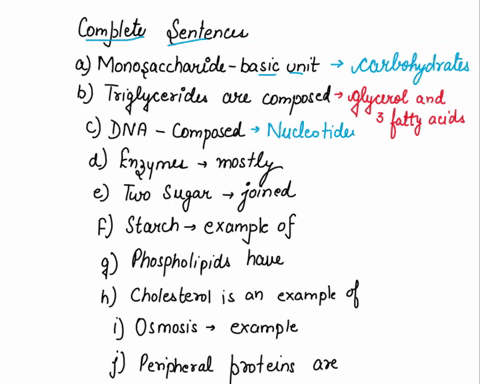 Complete Sentences
a) Monosaccharide - basic unit → carbohydrates
b) Triglycerides are composed → glycerol and
3 fatty acids
c) DNA - Composed → Nucleotides
d) Enzymes → mostly
e) Two Sugar → joined
f) Starch → example of
g) Phospholipids have
h) Cholesterol is an example of
i) Osmosis → example
j) Peripheral proteins are